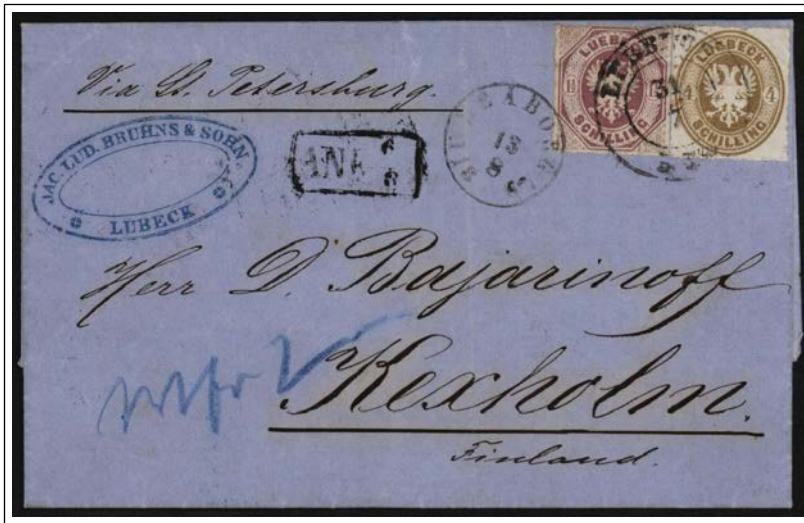 Via St. Petersburg.
JAC. LUD. BRUHNS & SOHN
LÜBECK
ANK
6
8
13
8
LUEBECK
SCHILLING
LÜBECK
4 4
SCHILLING
31
7
Herr D. Bajarinoff
Kexholm.
Finland.